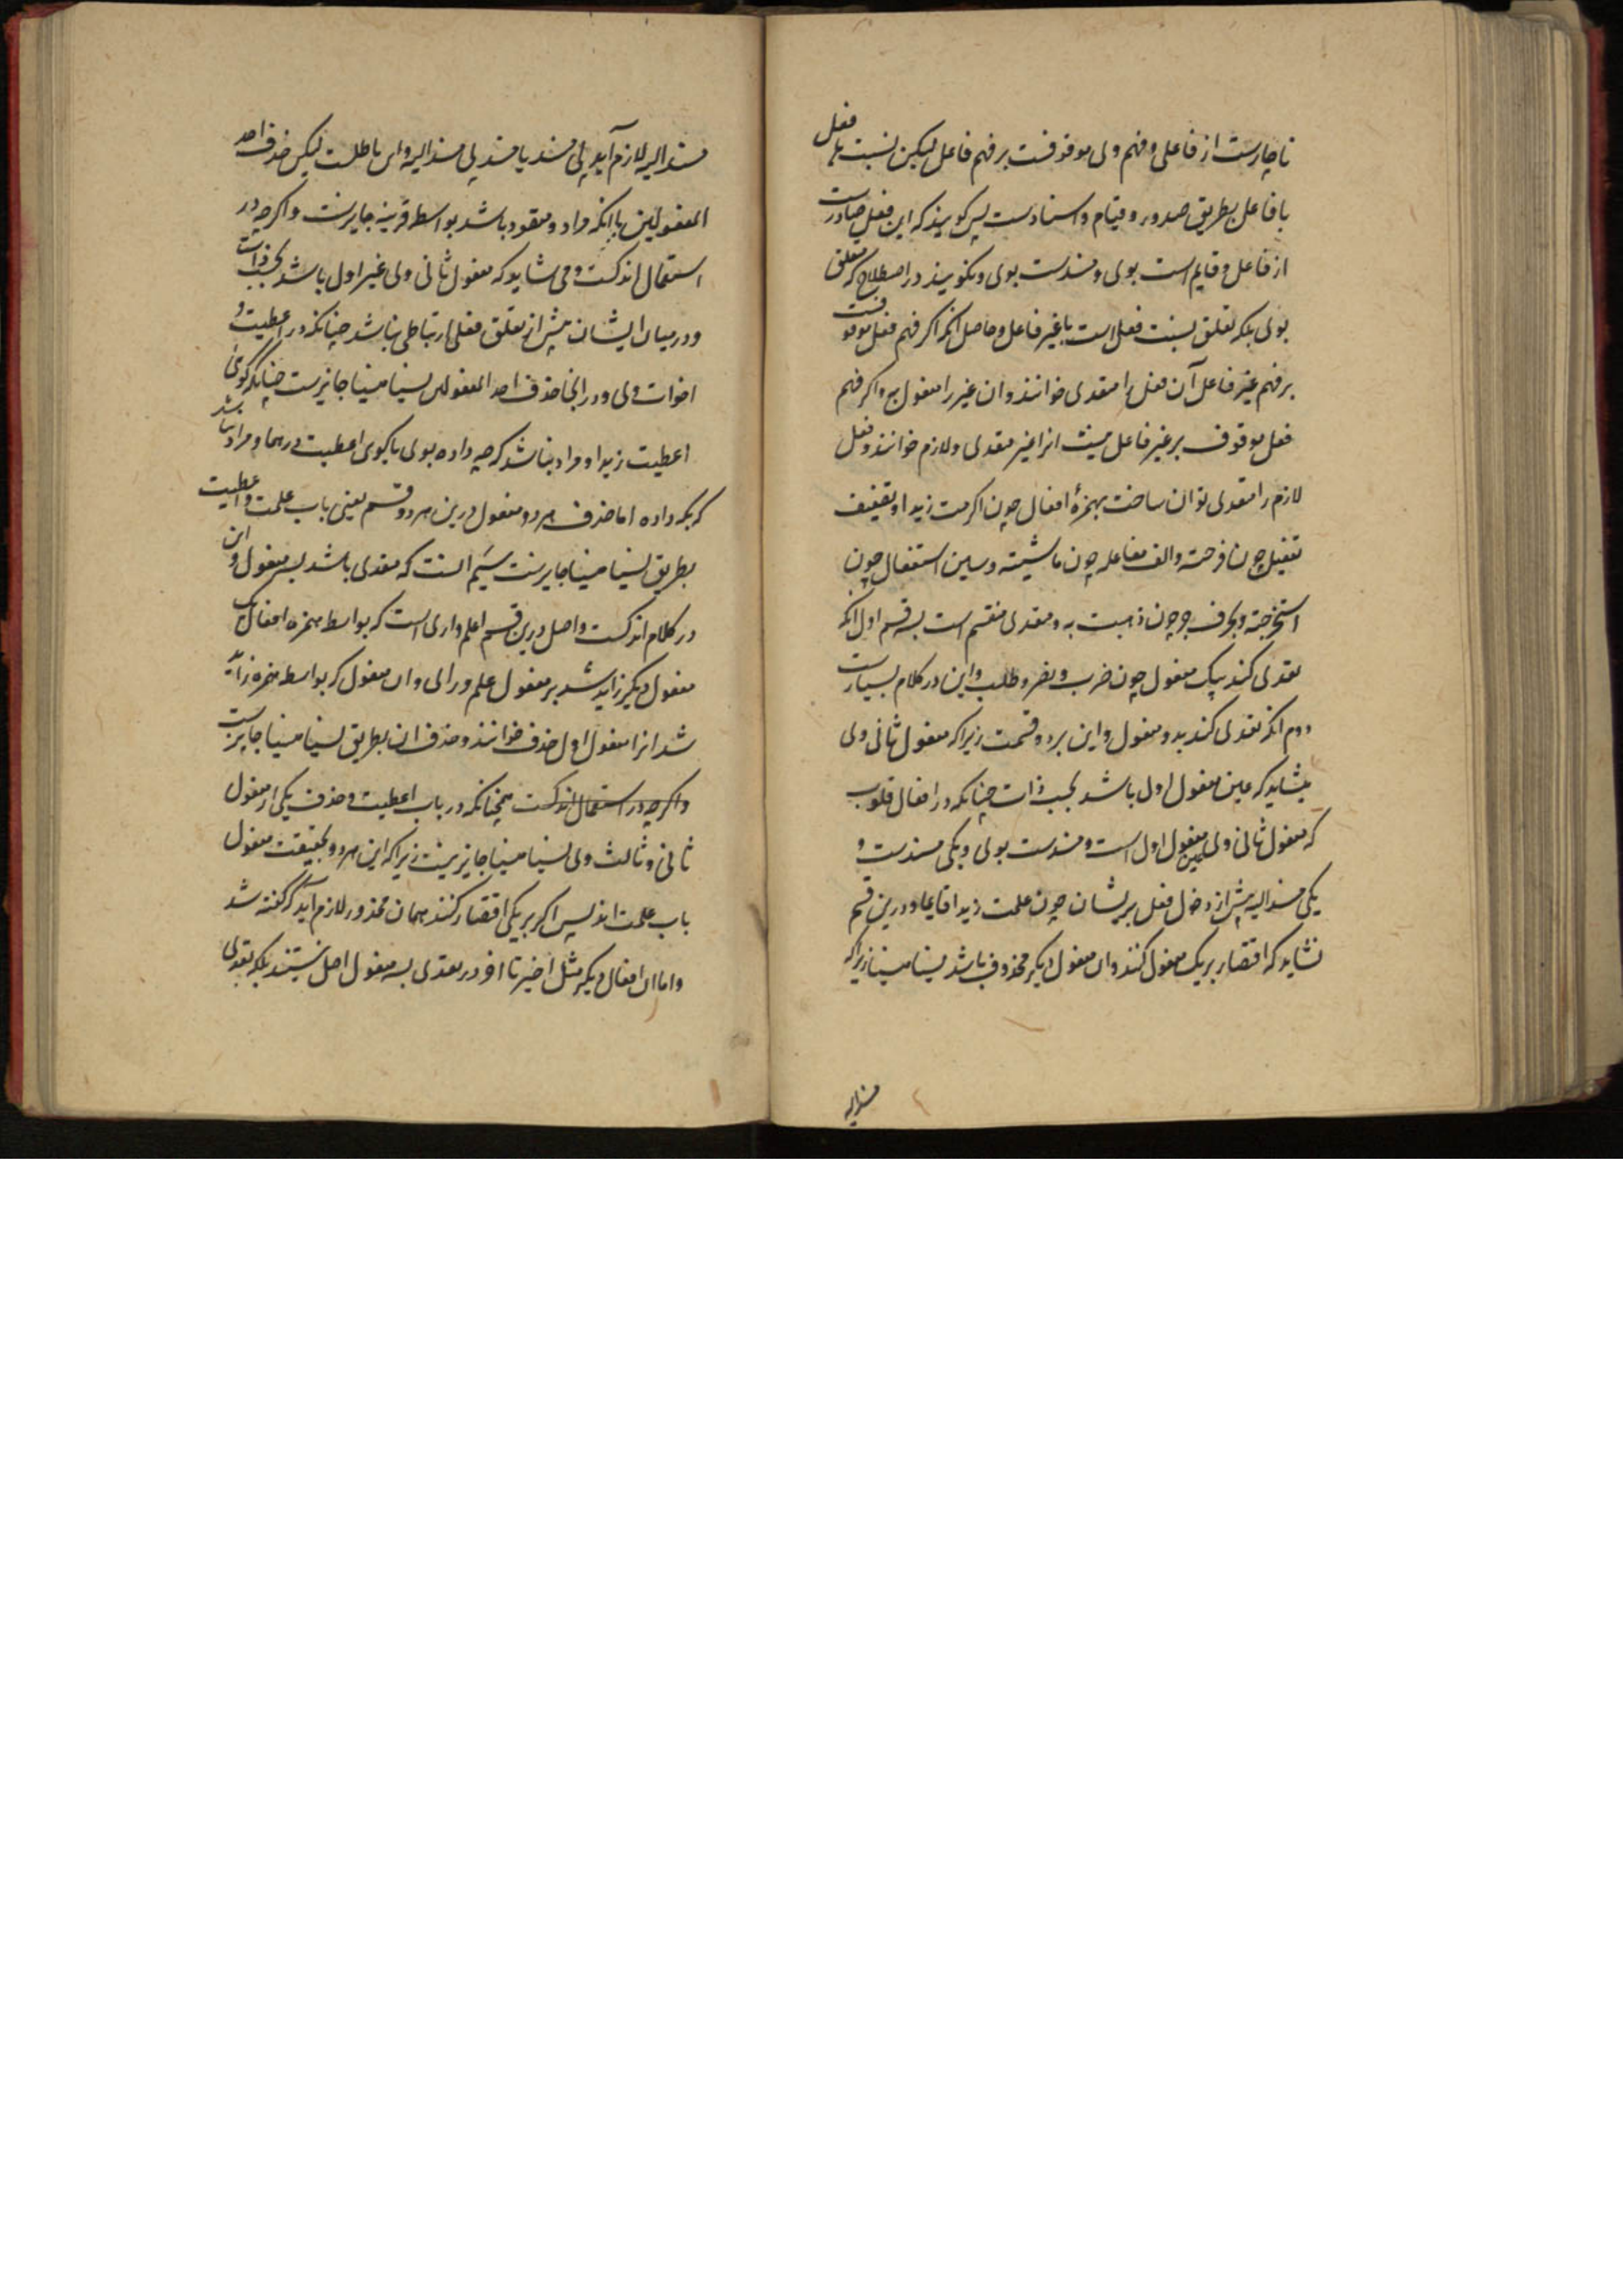 ناچارست از فاعلی و فهم وی موقوفست بر فهم فاعل لیکن نسبت فعل
با فاعل بطریق صدور و قیام و اسنادست پس کویند که این فعل صادرست
از فاعل و قایم است بوی و مسندست بوی و نکویند در اصطلاح که متعلق
بوی بلکه تعلق نسبت فعل است با غیر فاعل و حاصل انکه اکر فهم فعل موقوفست
بر فهم غیر فاعل آن فعل را متعدی خوانند و ان غیر را مفعول به و اکر فهم
فعل موقوف بر غیر فاعل نیست انرا غیر متعدی و لازم خوانند و فعل
لازم را متعدی توان ساخت بهمزهٔ افعال چون اکرمت زیدا و بتضعیف
تفعیل چون فرحته و الف مفاعله چون ماشیته و سین استفعال چون
استخرجته و بحرف جر چون ذهبت به و متعدی منقسم است بسه قسم اول انکه
تعدی کند بیک مفعول چون ضرب و نصر و طلب و این در کلام بسیارست
دوم انکه تعدی کند بدو مفعول و این بر دو قسمت زیرا که مفعول ثانی وی
میشاید که عین مفعول اول باشد بحسب ذات چنانکه در افعال قلوب
که مفعول ثانی وی عین مفعول اول است و مسندست بوی و یکی مسندست و
یکی مسندالیه پیش از دخول فعل بریشان چون علمت زیدا قایما و درین قسم
نشاید که اقتصار بر یک مفعول کنند و ان مفعول دیکر محذوف باشد نسیا منسیا زیرا که
مسندالیه
مسندالیه لازم آید بی مسند یا مسند بی مسندالیه و این باطلست لیکن حذف احد
المفعولین با انکه مراد و مقصود باشد بواسطه قرینه جایزست و اکرچه در
استعمال اندکست و می شاید که مفعول ثانی وی غیر اول باشد بحسب ذات
و در میان ایشان پیش از تعلق فعل ارتباطی نباشد چنانکه در اعطیت و
اخوات وی و در انجا حذف احد المفعولین نسیا منسیا جایزست چنانکه کوئی
اعطیت زیدا و مراد نباشد که چه داده بوی یا کوی اعطیت درهما و مراد نباشد
که بکه داده اما حذف هر دو مفعول درین هر دو قسم یعنی باب علمت و اعطیت
بطریق نسیا منسیا جایزست سیم انست که متعدی باشد بسه مفعول و این
در کلام اندکست و اصل درین قسم اعلم و اری است که بواسطه همزه افعال یک
مفعول دیکر زاید شد بر مفعول علم و رای و ان مفعول که بواسطه همزه زاید
شد انرا مفعول اول خوانند و حذف ان بطریق نسیا منسیا جایزست
و اکرچه در استعمال اندکست همچنانکه در باب اعطیت و حذف یکی از مفعول
ثانی و ثالث وی نسیا منسیا جایز نیست زیرا که این هر دو بحقیقت مفعول
باب علمت اند پس اکر بر یکی اقتصار کنند همان محذور لازم آید که کفته شد
و اما ان افعال دیکر مثل اخبر تا اخر در تعدی بسه مفعول اصل نیستند بلکه تعدی